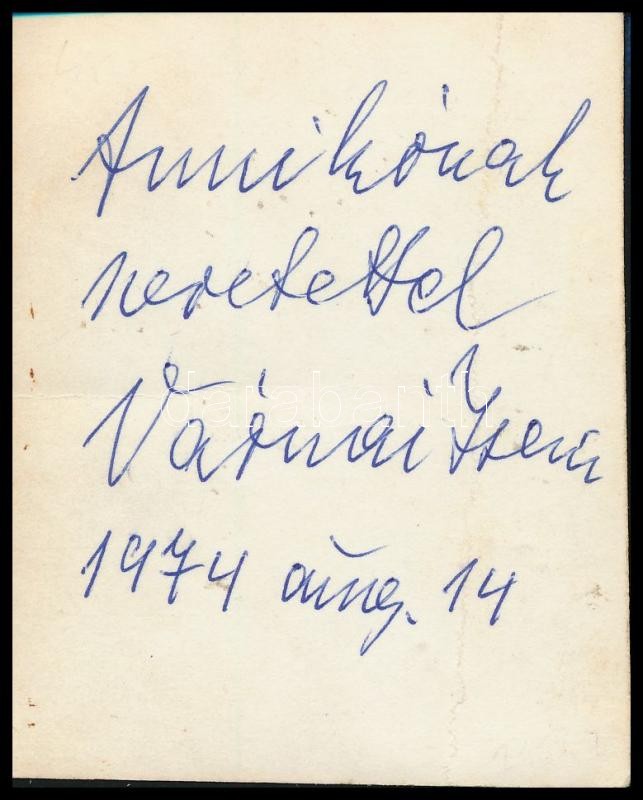 Annikónak
szeretettel
Várnai Zseni
1974 aug. 14
darabanth